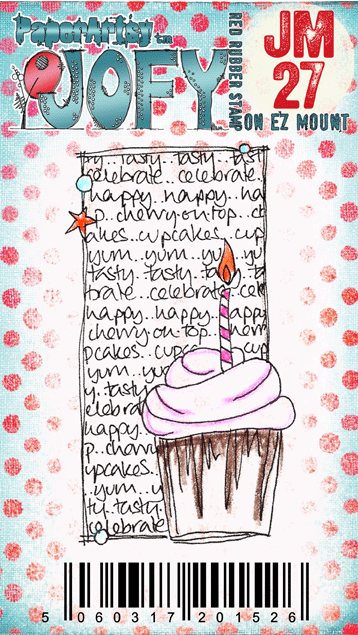 PaperArtsy tm
JOFY
RED RUBBER STAMP
ON EZ MOUNT
JM
27
ty.. tasty.. tasty.. tast
celebrate.. celebrate.
happy.. happy.. ha
p.. cherry-on-top.. c
akes.. cupcakes.. cup
yum.. yum.. yum.. yu
tasty.. tasty.. ta
brate.. celebrate
happy.. happy.. happy
cherry-on-top.. cherr
pcakes.. cupca
yum.. yu
y.. tasty
elebrat
happy.
p.. cherry
upcakes..
.. yum.. y
ty.. tasty
celebrate
5 060317 201526